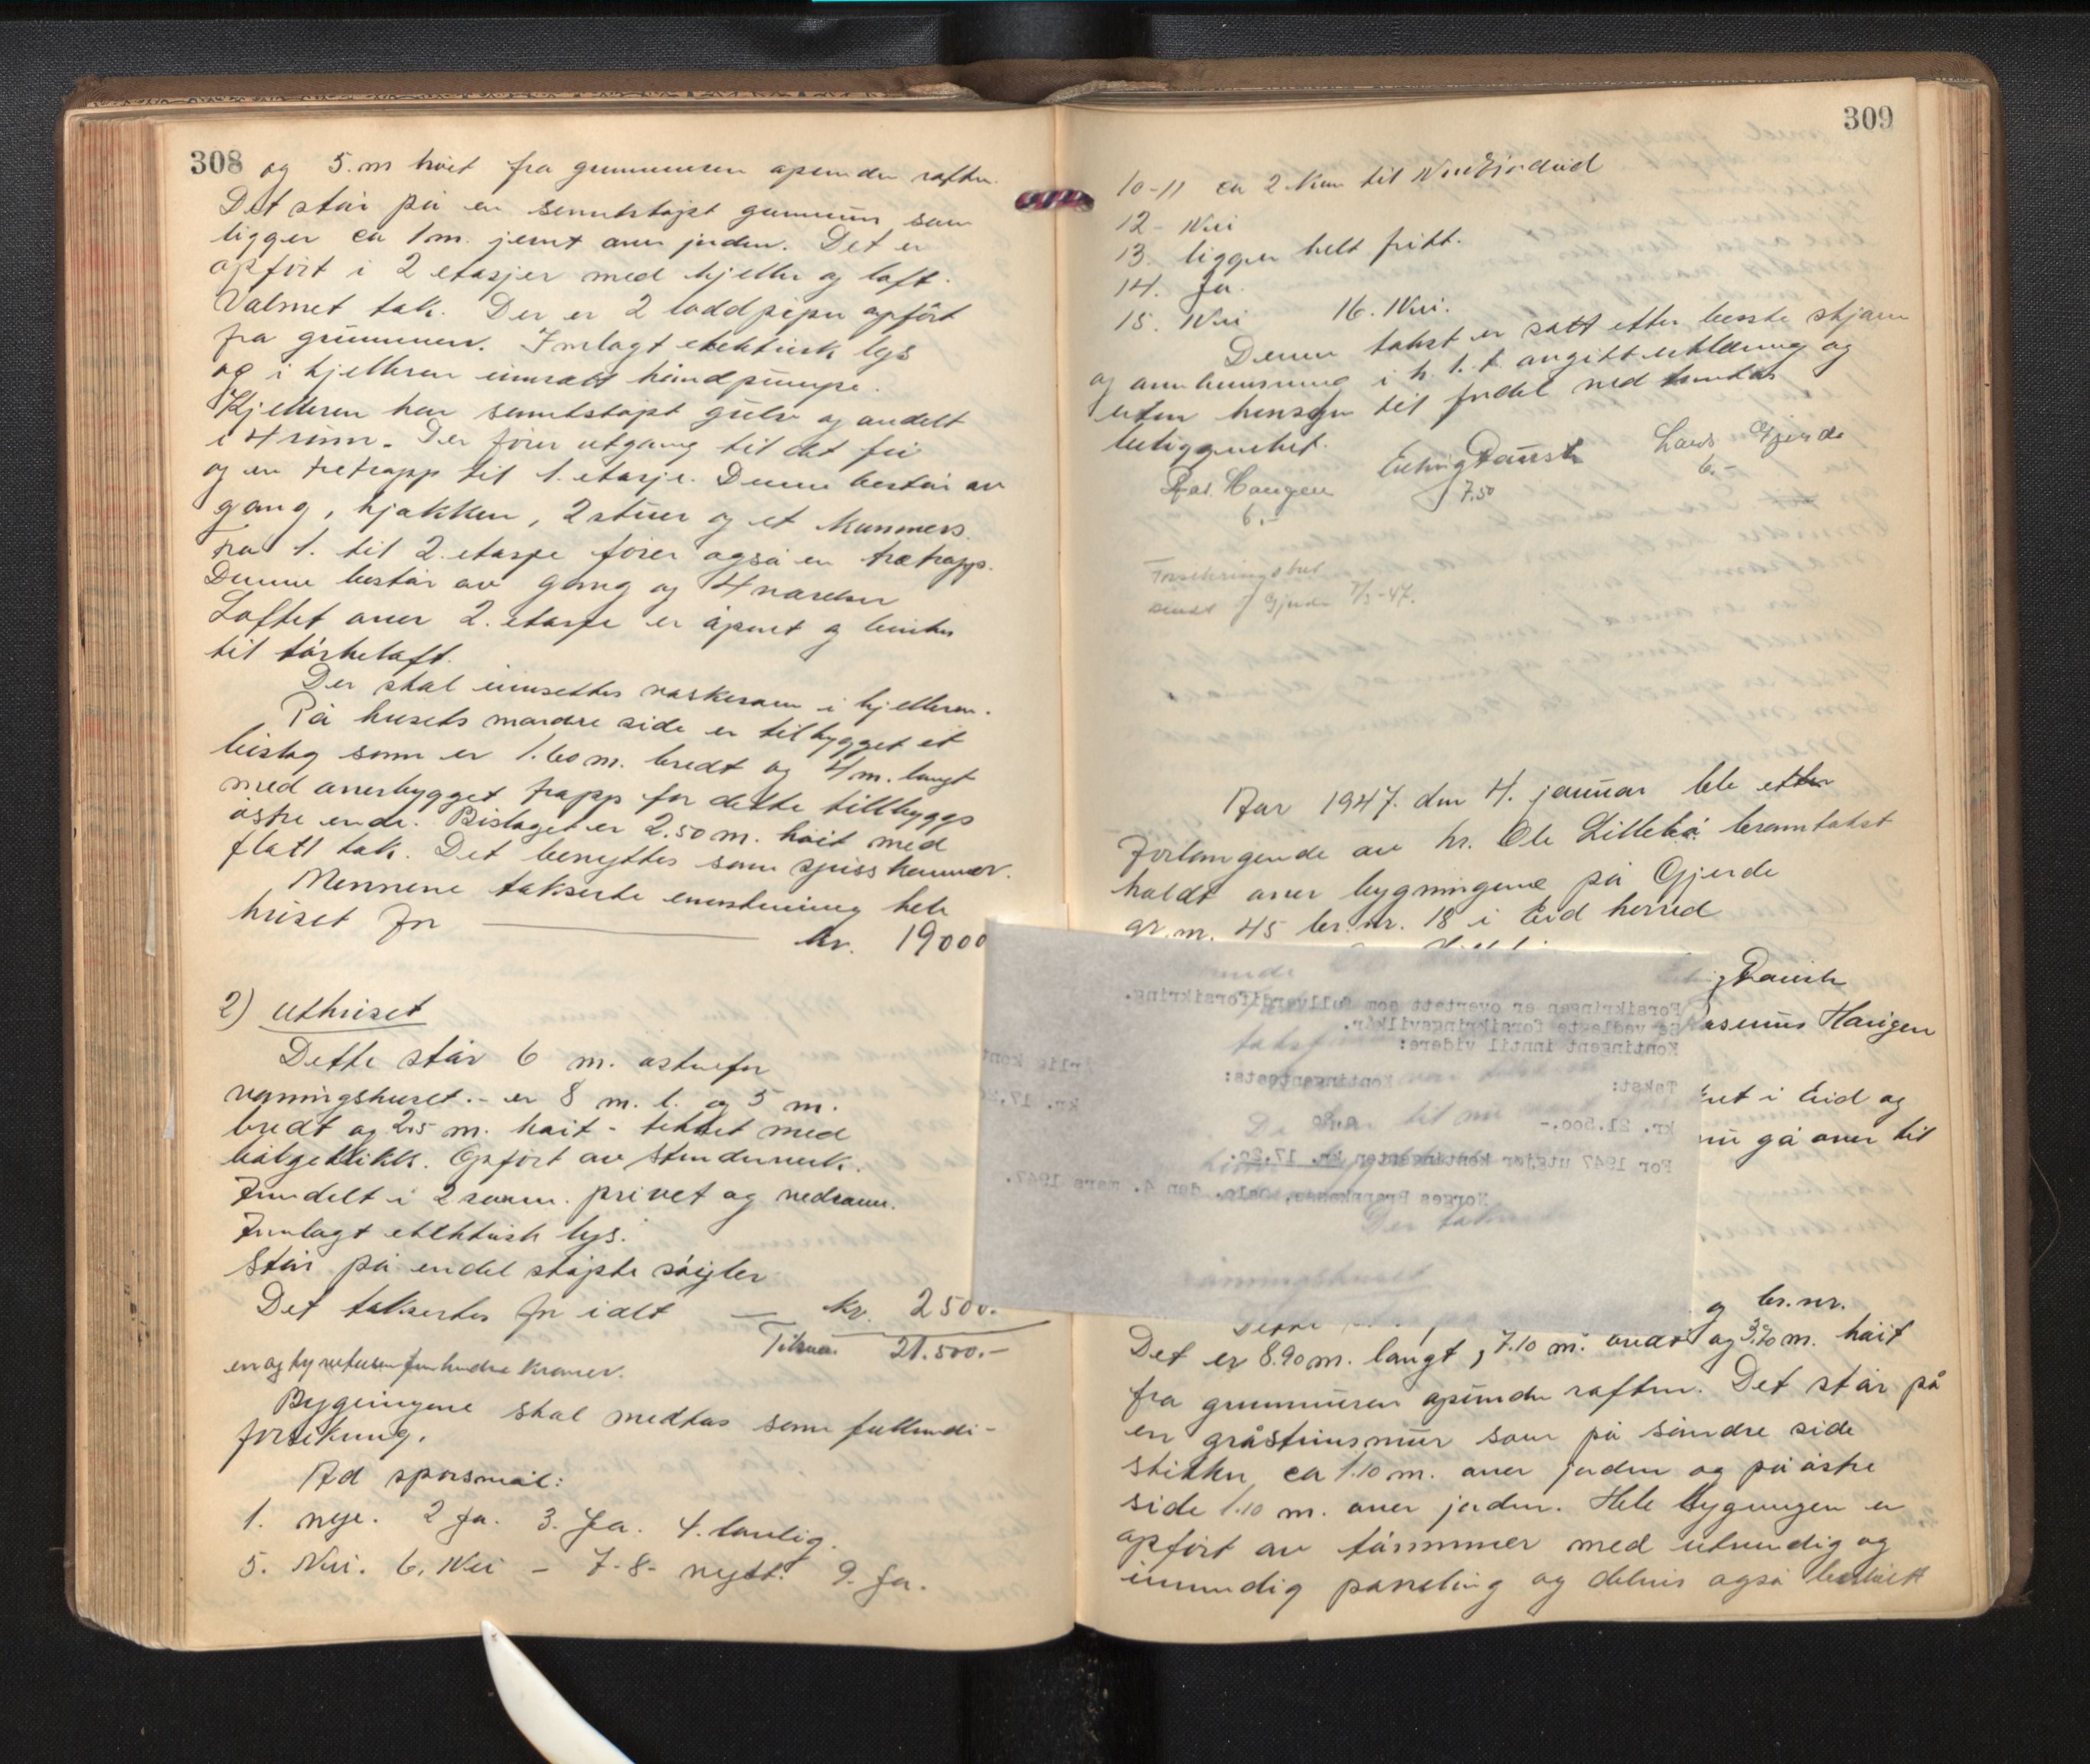 308
og 5. m höit fra grunnmuren opunder raften.
Det står på en sementstøpt grunnmur som
ligger ca 1 m. jevnt over jorden. Det er
opført i 2 etasjer med kjeller og loft.
Valmet tak. Der er 2 loddpiper opført
fra grunnen. Innlagt elektrisk lys
og i kjelleren innsatt håndpumpe.
Kjelleren har sementstøpt gulv og avdelt
i 4 rum. Der fører utgang til det fri
og en tretrapp til 1. etasje. Denne består av
gang, kjøkken, 2 stuer og et kammers.
Fra 1. til 2. etasje fører også en trætrapp.
Denne består av gang og 4 værelser
Loftet over 2. etasje er åpent og benyttes
til tørkeloft.
Der skal innsettes vaskerum i kjelleren.
På husets nordre side er tilbygget et
bislag som er 1.60 m. bredt og 4 m. langt
med overbygget trapp for dette tillbyggs
østre ende. Bislaget er 2.50 m. höit med
flatt tak. Det benyttes som spisskammer.
Mennene takserte enestemmig hele
huset for kr. 19000
2) Uthuset
Dette står 6 m. østenfor
våningshuset. - er 8 m. l. og 5 m.
bredt og 2,5 m. höit - tekket med
bølgeblikk. Opført av stenderverk.
Inndelt i 2 rum. privet og vedrum.
Innlagt elektrisk lys.
Står på endel støpte søyler
Det takseres for ialt kr. 2500.-
Tilsam. 21.500.-
en og ty vetusen femhundre kroner.
Bygningene skal medtas som fullverdi-
forsikring.
Ad spørsmål:
1. nye. 2 Ja. 3. Ja. 4. lovlig.
5. Nei. 6. Nei - 7-8- nytt. 9. Ja.
309
10-11 ca 2 km til Nordfjordeid
12 - Nei
13. ligger helt fritt.
14. Ja.
15. Nei 16. Nei.
Denne takst er satt efter beste skjønn
og overbevisning i h. t. t. avgitt erklæring og
uten hensyn til fordel ved tomtens
beliggenhet.
Ras. Haugen Ludvig Taursh Lars Gjerde
6.- 7.50 6.-
Forsikringsbev
sendt Gjerde 7/3-47.
Aar 1947. den 4. januar ble etter
forlangende av hr. Ole Lillebø branntakst
holdt over bygningene på Gjerde
gr.nr. 45 br.nr. 18 i Eid herred
Rasmus Haugen
i Eid og
gå over til
Forsikringen er overtatt som fullverdiforsikring.
Se vedlagte forsikringsvilkår.
Kontingent inntil videre:
Takst:
Kontingentsats:
Årlig kont
kr. 21.500.-
kr. 17.20
For 1947 utgjør kontingenten kr. 17.20.
Norges Brannkasse, Oslo, den 4. mars 1947.
og br.nr.
Det er 8.90 m. langt, 7.10 m. bredt og 3.70 m. höit
fra grunnmuren opunder raften. Det står på
en gråstensmur som på søndre side
stikker ca 1.10 m. over jorden og på østre
side 1.10 m. over jorden. Hele bygningen er
opført av tømmer med utvendig og
innvendig paneling og delvis også